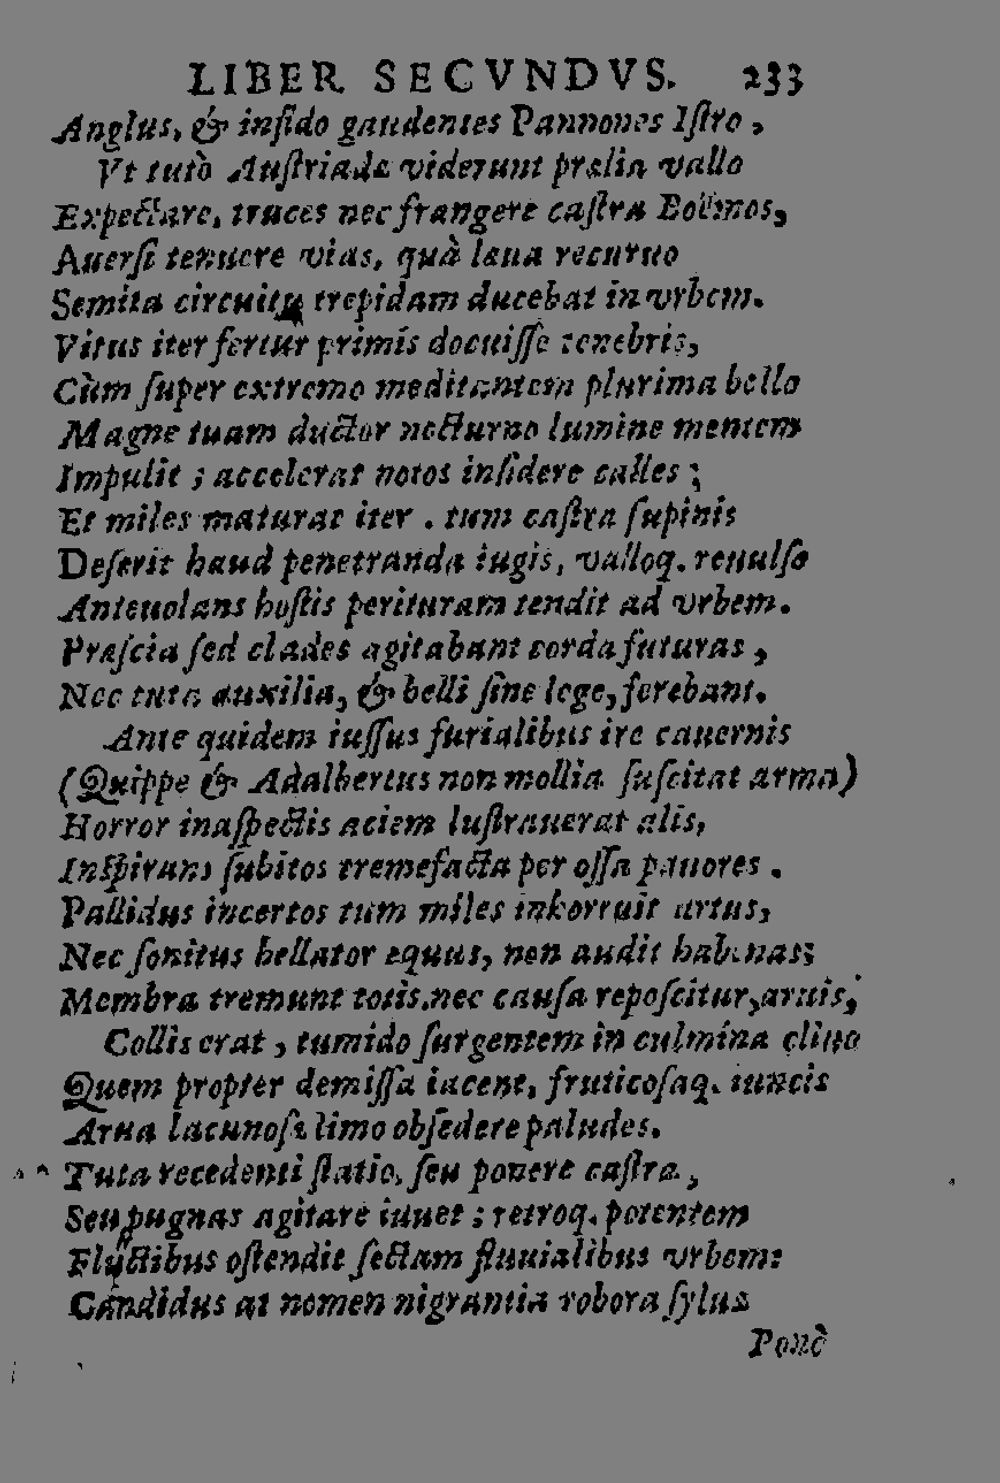 LIBER SECVNDVS. 233
Anglus, & infido gaudentes Pannones Istro,
Vt tutò Austriadæ viderunt prælia vallo
Expectare, truces nec frangere castra Boëmos,
Auersi tenuere vias, quà læua recuruo
Semita circuitu trepidam ducebat in vrbem.
Vitus iter fertur primis docuisse tenebris,
Cùm super extremo meditantem plurima bello
Magne tuam ductor nocturno lumine mentem
Impulit ; accelerat notos insidere calles ;
Et miles maturat iter . tum castra supinis
Deserit haud penetranda iugis, valloq. reuulso
Anteuolans hostis perituram tendit ad vrbem.
Præscia sed clades agitabant corda futuras ,
Nec tuta auxilia, & belli sine lege, ferebant.
Ante quidem iussus furialibus ire cauernis
(Quippe & Adalbertus non mollia suscitat arma)
Horror inaspectis aciem lustrauerat alis,
Inspirans subitos tremefacta per ossa pauores .
Pallidus incertos tum miles inhorruit artus,
Nec sonitus bellator equus, non audit habenas;
Membra tremunt totis, nec causa reposcitur, armis;
Collis erat , tumido surgentem in culmina cliuo
Quem propter demissa iacent, fruticosaq. iuncis
Arua lacunosæ limo obsedere paludes.
Tuta recedenti statio, seu ponere castra ,
Seu pugnas agitare iuuet ; retroq. potentem
Fluctibus ostendit sectam fluuialibus vrbem:
Candidus at nomen nigrantia robora syluæ
Ponè